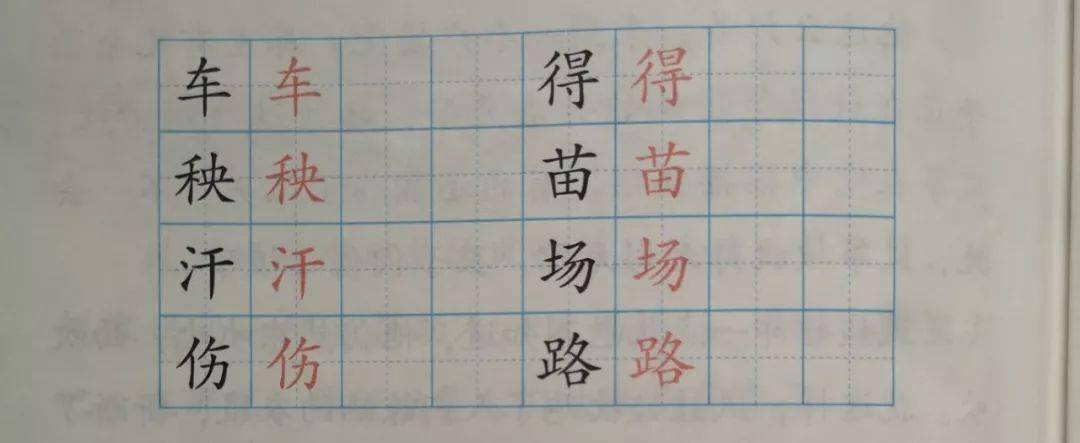 车 车 得 得
秧 秧 苗 苗
汗 汗 场 场
伤 伤 路 路